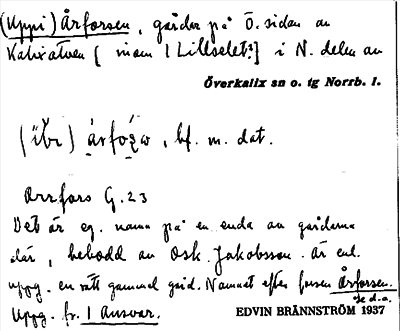 (Uppi) Årforsen, gårdar på Ö. sidan av
Kalixälven [ inom 1 Lillselet?] i N. delen av
Överkalix sn o. tg Norrb. l.
, bf. m. dat.
Arrfors G. 23
Det är eg. namn på en enda av gårdarna
där, bebodd av Osk. Jakobsson. är enl.
uppg. en rätt gammal gård. Namnet efter forsen Årforsen.
se d.o.
Uppg. fr. 1 Ansvar.
EDVIN BRÄNNSTRÖM 1937